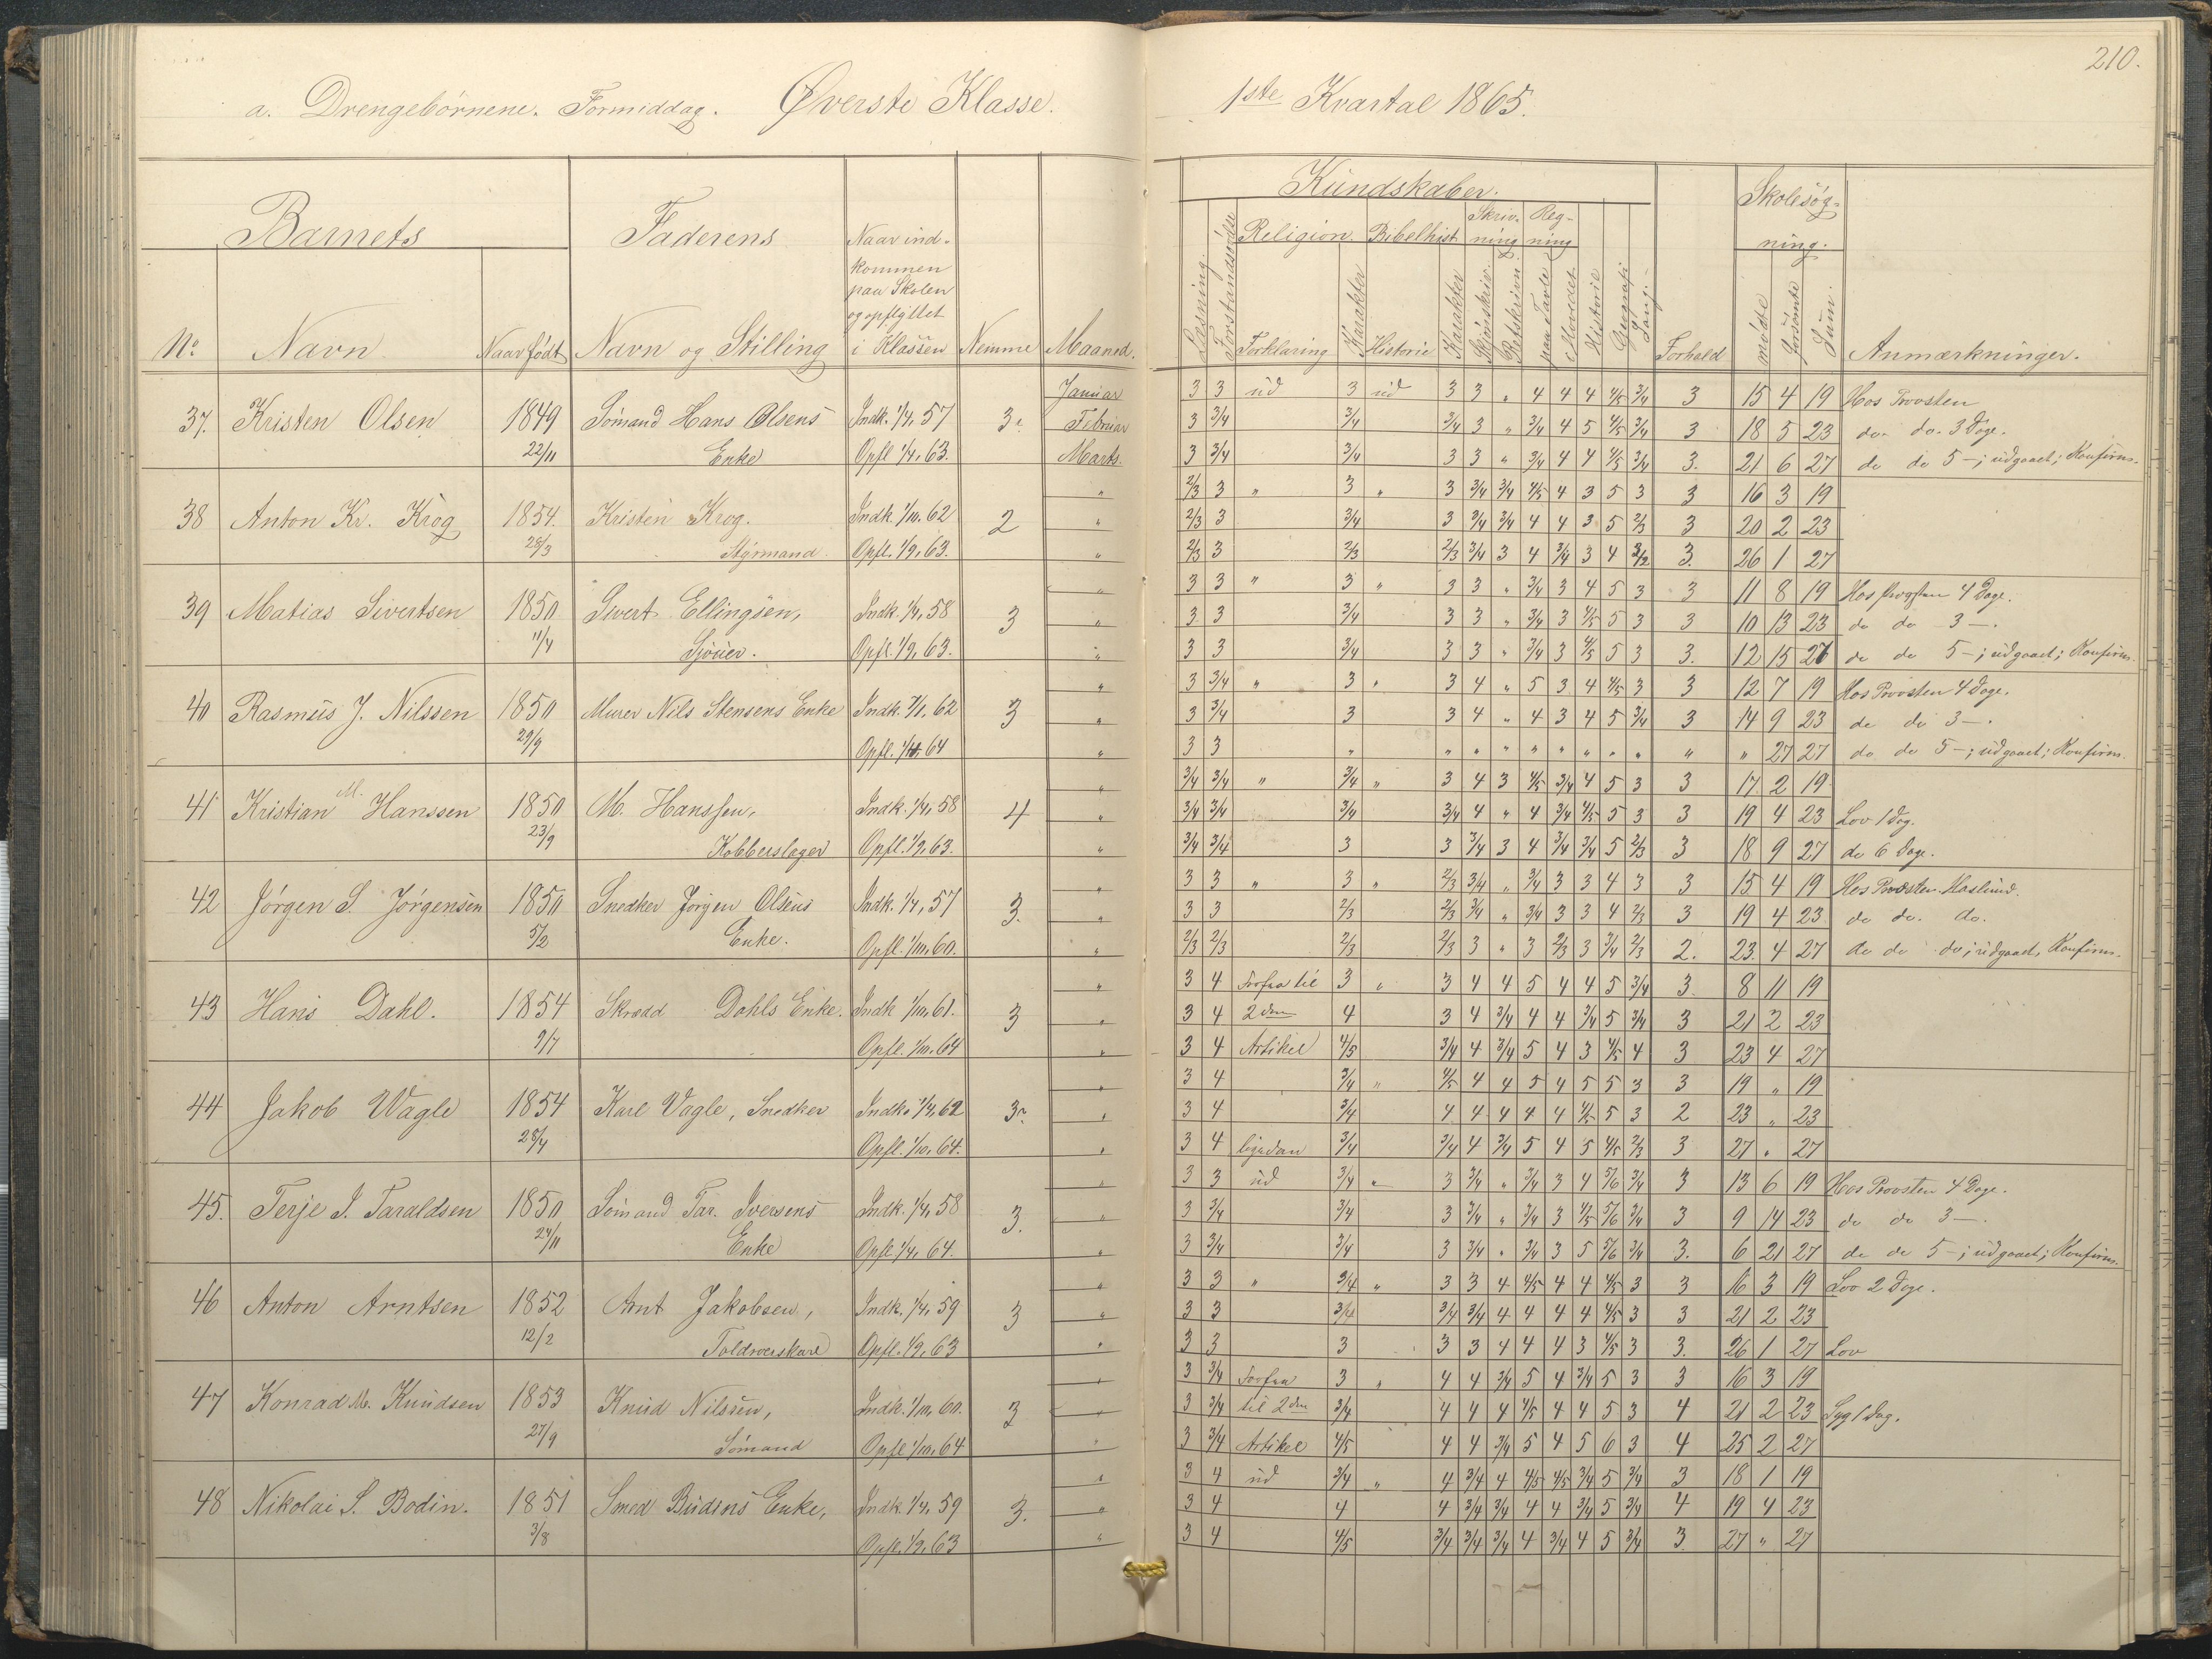 210.
a. Drengebörnene. Formiddag. Øverste Klasse.
1ste Kvartal 1865.
Barnets Faderens
Naar ind-
kommen
paa Skolen
og opflyttet
No Navn Naar født Navn og Stilling i Klassen Nemme Maaned.
Kundskaber.
Skolesøg-
ning.
Religion. Bibelhist Skriv-
ning Reg-
ning
Læsning. Forstandsøvelse Forklaring Karakter Historie Karakter Skjönskriv. Retskrivn paa Tavle i Hovedet Historie Geografi Sang. Forhold mødte forsømte Sum. Anmærkninger.
37. Kristen Olsen 1849 Sömand Hans Olsens Indk. 1/4, 57 3.
22/11 Enke Opfl 1/4, 63.
Januar 3 3 ud 3 ud 3 3 " 4 4 4 4/5 3/4 3 15 4 19 Hos Provsten
Februar 3 3/4 3/4 3/4 3 " 3/4 4 5 4/5 3/4 3 18 5 23 do. do. 3 Dage.
Marts. 3 3/4 3/4 3 3 " 3/4 4 4 4/5 3/4 3. 21 6 27 do do 5 -; udgaaet; Konfirm.
38 Anton Kr. Krog 1854. Kristen Krog. Indk. 1/10. 62 2
28/3 Styrmand. Opfl. 1/9, 63.
" 2/3 3 " 3 " 3 3/4 3/4 4/5 4 3 5 3 3 16 3 19
" 2/3 3 3/4 3 3/4 3/4 4 4 3 5 2/3 3 20 2 23
" 2/3 3 2/3 2/3 3/4 3 4 3/4 3 4 3/2 3. 26 1 27
39 Matias Sivertsen 1850 Sivert Ellingsen, Indk. 1/4, 58 3
11/4 Sjouer. Opfl. 1/9, 63.
" 3 3 " 3 " 3 3 " 3/4 3 4 5 3 3 11 8 19 Hos Provsten 4 Dage.
" 3 3 3/4 3 3 " 3/4 3 4/5 5 3 3 10 13 23 do do 3 -.
" 3 3 3/4 3 3 " 3/4 3 4/5 5 3 3. 12 15 27 do do 5 -; udgaaet; Konfirm.
40 Rasmus J. Nilssen 1850 Murer Nils Stensens Enke Indk. 7/1, 62 3
29/9 Opfl. 64
" 3 3/4 " 3 " 3 4 " 5 3 4 4/5 3 3 12 7 19 Hos Provsten 4 Dage.
" 3 3/4 3 3 4 " 4 3 4 5 3/4 3 14 9 23 do do 3 -.
" 3 3 " " " " " " " " " " " 27 27 do do 5 -; udgaaet; Konfirm.
41 Kristian M. Hanssen 1850 M. Hanssen, Indk. 1/4, 58 4
23/9 Kobberslager Opfl. 1/9, 63.
" 3/4 3/4 " 3/4 " 3 4 3 4/5 3/4 4 5 3 3 17 2 19
" 3/4 3/4 3/4 3/4 4 " 4 3/4 4/5 5 3 3 19 4 23 Lov 1 Dag.
" 3/4 3/4 3 3 3/4 3 4 3/4 3/4 5 2/3 3 18 9 27 do 6 Dage.
42 Jörgen S. Jörgensen 1850 Snedker Jörgen Olsens Indk. 1/4, 57 3.
5/2 Enke. Opfl. 1/10, 60.
" 3 3 " 3 " 2/3 3/4 " 3/4 3 3 4 3 3 15 4 19 Hos Provsten Haslund.
" 3 3 2/3 2/3 3/4 " 3/4 3 3 4 2/3 3 19 4 23 do do. do.
" 2/3 2/3 2/3 2/3 3 " 3 2/3 3 3/4 2/3 2. 23. 4 27 do do do; udgaaet, Konfirm.
43 Hans Dahl. 1854 Skrædd Dahls Enke. Indk 1/10, 61. 3
9/7 Opfl. 1/10. 64
" 3 4 Forfra til 3 " 3 4 4 5 4 4 5 3/4 3. 8 11 19
" 3 4 2den 4 3 4 3/4 4 4 3/4 5 3/4 3 21 2 23
" 3 4 Artikel 4/5 3/4 4 3/4 5 4 3 4/5 4 3 23 4 27
44 Jakob Vagle 1854 Karl Vagle, Snedker Indk. 1/4, 62 3.
28/4 Opfl. 1/10, 64.
" 3 4 3/4 " 4/5 4 4 5 4 5 5 3 3 19 " 19
" 3 4 3/4 4 4 4 4 4 4/5 5 3 2 23 " 23
" 3 4 ligedan 3/4 3/4 4 3/4 5 4 5 4/5 2/3 3 27 " 27
45. Terje I. Taraldsen 1850 Sömand Tar. Iversens Indk. 1/4, 58 3.
24/11 Enke Opfl 1/4, 64.
" 3 3 ud 3/4 " 3 3/4 " 3/4 3 4 5/6 3/4 3 13 6 19 Hos Provsten 4 Dage.
" 3 3/4 3/4 3 3/4 " 3/4 3 4/5 5/6 3/4 3 9 14 23 do do 3 -.
" 3 3/4 3/4 3 3/4 " 3/4 3 5 5/6 3/4 3. 6 21 27 do do 5 -; udgaaet; Konfirm.
46 Anton Arntsen 1852 Arnt Jakobsen, Indk. 1/4, 59 3
12/2 Toldroerskarl Opfl. 1/9, 63
" 3 3 " 3/4 " 3 3 4 4/5 4 4 4/5 3 3 16 3 19 Lov 2 Dage.
" 3 3 3/4 3/4 3/4 4 4 4 4 4/5 3 3 21 2 23
" 3 3 3 3 3 4 4 4 3 4/5 3 3. 26 1 27 Lov
47 Konrad M. Knudsen 1853 Knud Nilssen, Indk. 1/10, 60. 3
27/9 Sömand Opfl 1/10, 64
" 3 3/4 Forfra 3 " 4 4 3/4 5 4 3/4 5 3 3 16 3 19
" 3 3/4 til 2den 3/4 4 4 4 4/5 4 4 5 3 4 21 2 23 Syg 1 Dag.
" 3 3/4 Artikel 4/5 4 4 3/4 5 4 5 6 3 4 25 2 27
48 Nikolai S. Bodin. 1851 Smed Budins Enke, Indk. 1/4, 59 3.
3/8 Opfl. 1/9, 63
" 3 4 ud 3/4 " 4 3/4 4 4/5 4/5 3/4 5 3/4 3 18 1 19
" 3 4 4 4 3/4 3/4 4 4 3/4 5 3/4 4 19 4 23
" 3 4 4/5 3/4 3/4 3/4 4 3/4 4 5 3/4 3. 27 " 27